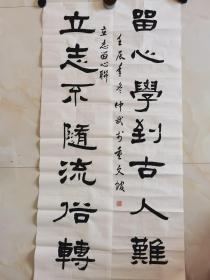 留心學到古人難
壬辰季冬仲武書於重文館
立志留心聯
立志不隨流俗轉